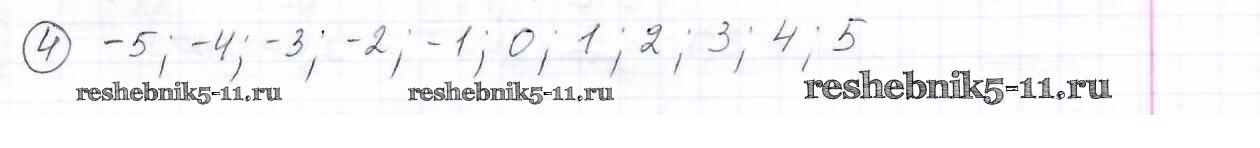 4 -5; -4; -3; -2; -1; 0; 1; 2; 3; 4; 5
reshebnik5-11.ru reshebnik5-11.ru reshebnik5-11.ru